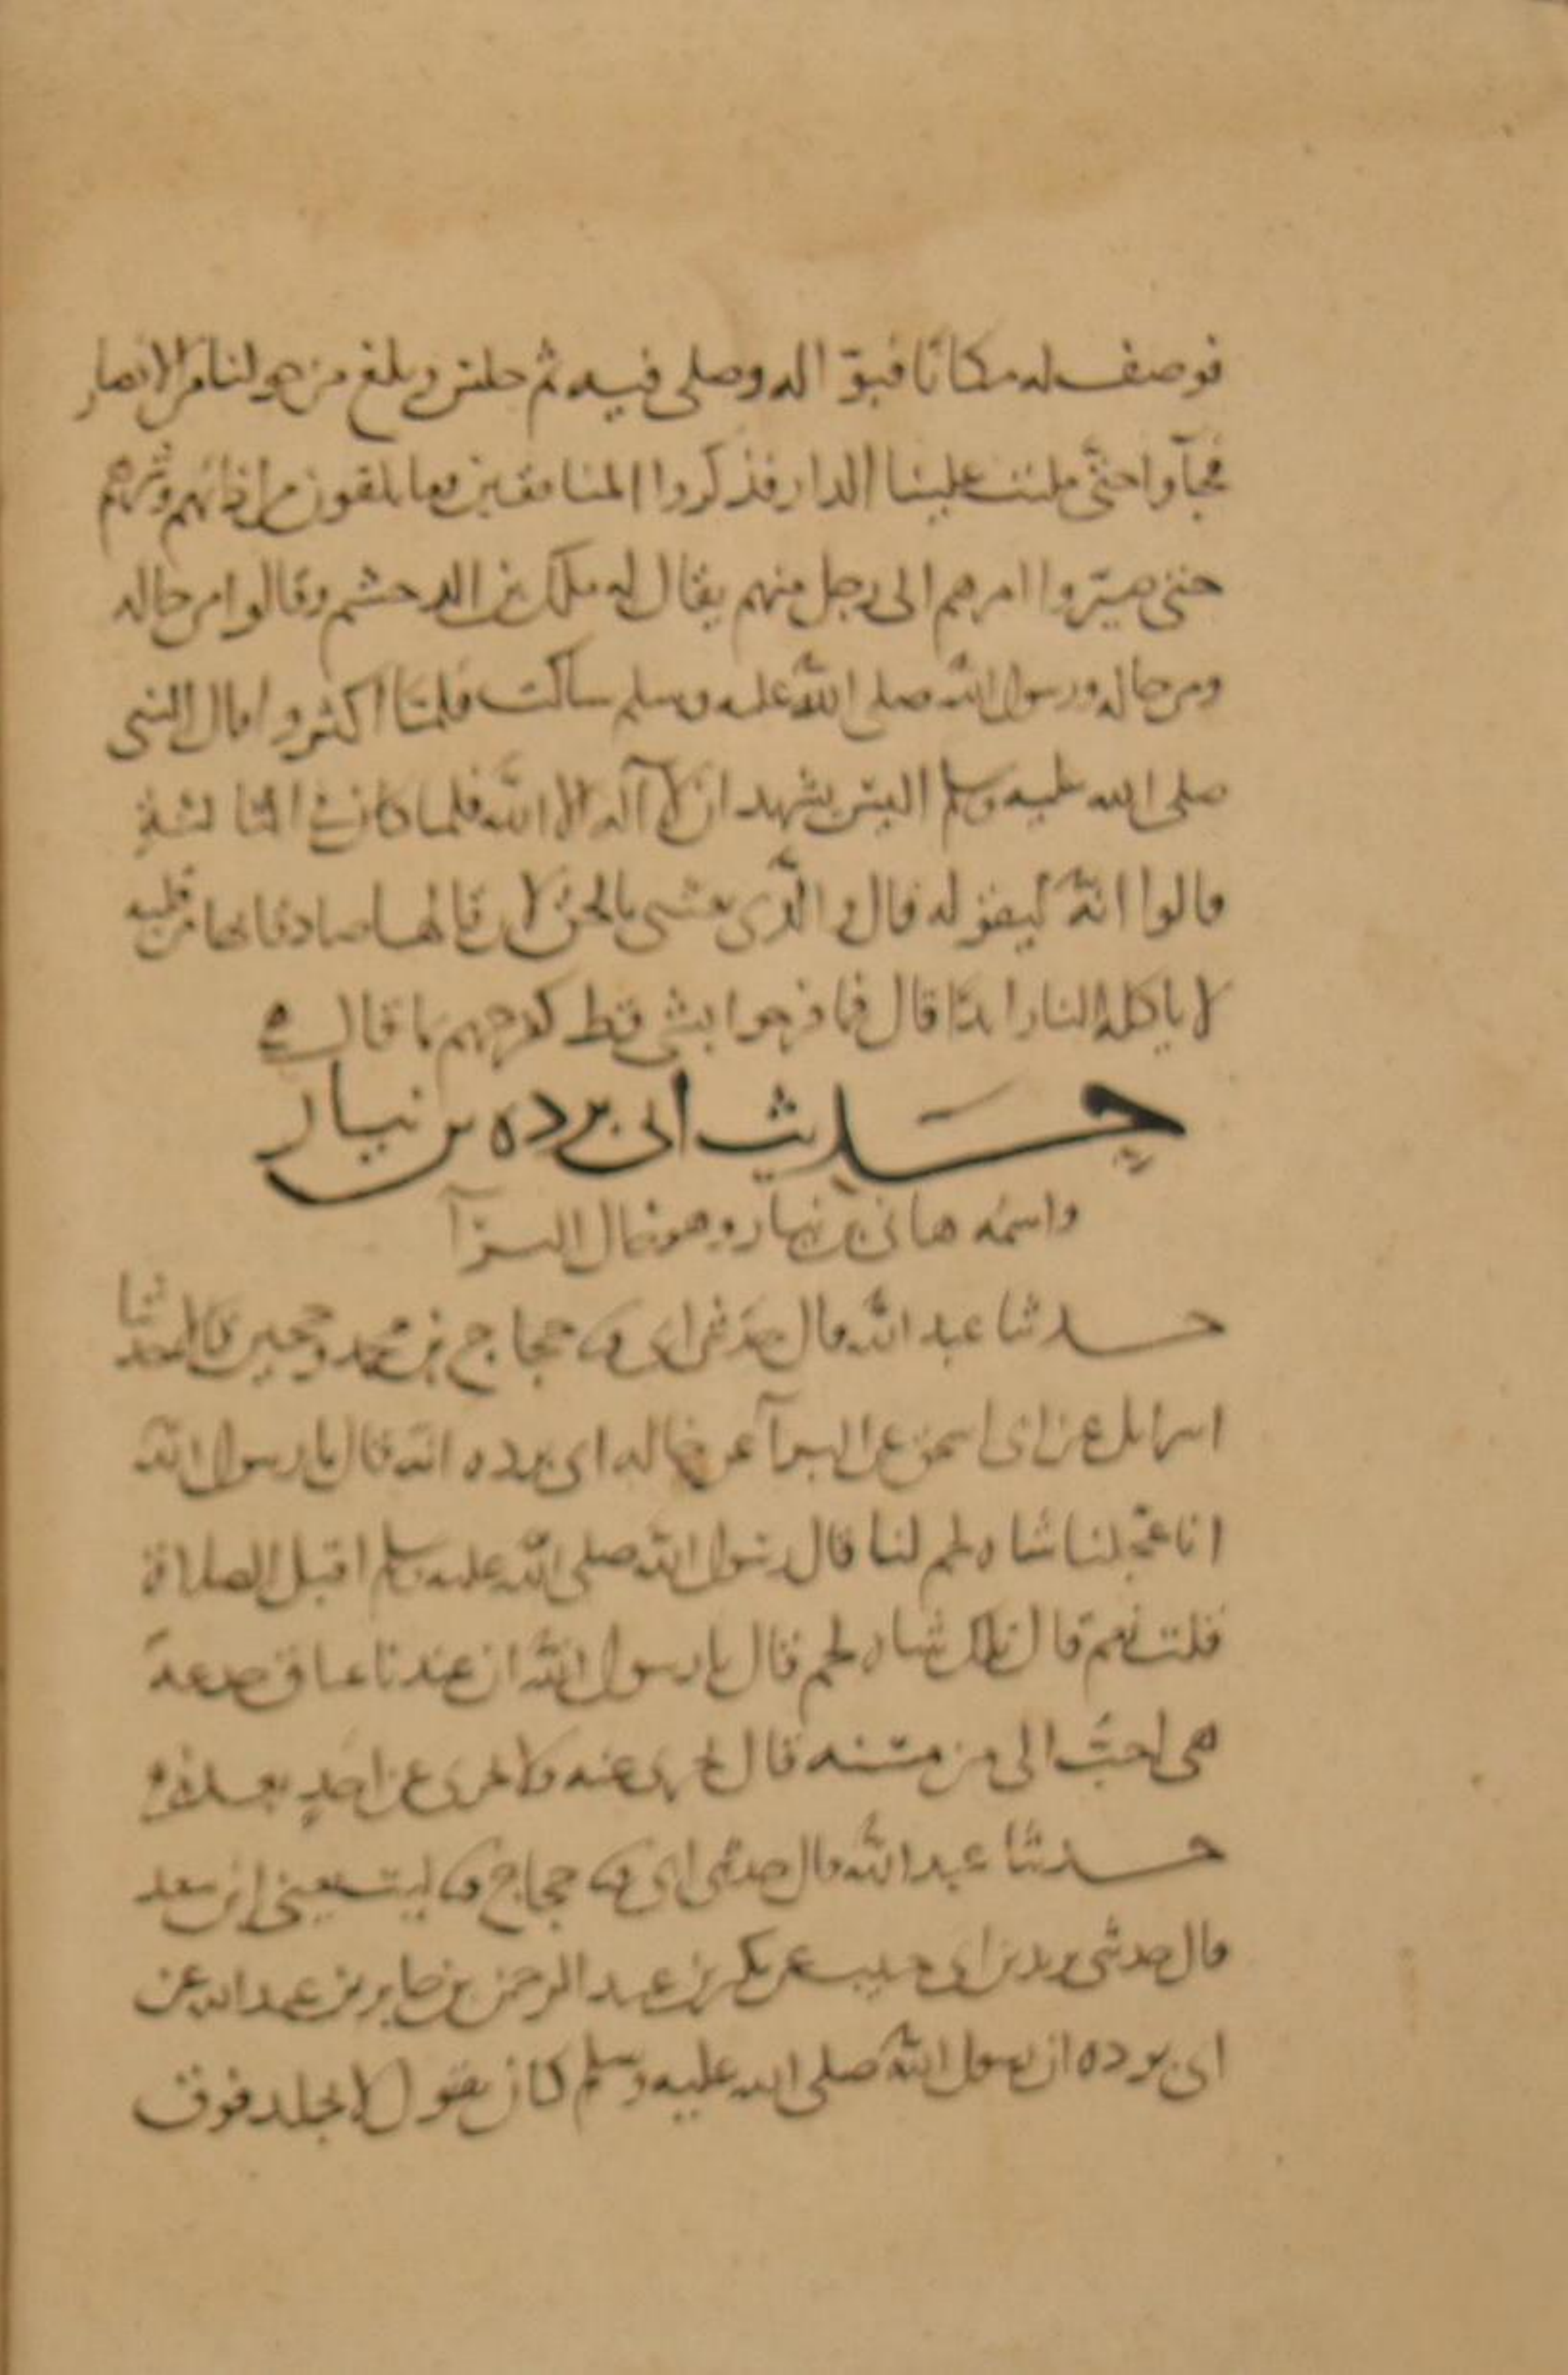 فوصف له مكانا فبوّا له وصلى فيه ثم جلس وبلغ من حولنا من الانصار
فجآوا حتى ملئت علينا الدار فذكروا المنافقين وما يلقون من اذائهم وشرهم
حتى صيّروا امرهم الى رجل منهم يقال له ملك بن الدخشم وقالوا من حاله
ومن حاله ورسول الله صلى الله عليه وسلم ساكت فلمّا اكثروا قال النبى
صلى الله عليه وسلم اليس يشهد ان لا آله الا الله فلما كان في الثالثة
قالوا انّه ليقوله قال والّذى بعثنى بالحق لان قالها صادقا بها من قلبه
لا تاكله النار ابدًا قال فما فرحوا بشى قط كفرحهم بما قال
حَديث ابى برده بن نيار
واسمُه هانى بن نيار وهو خال البرآ
حدثنا عبد الله قال حدّثنى ابى حجاج بن محمد وحجين قالا حدثنا
اسرائل عن ابى اسحق عن البرآ عن خاله ابى برده انّه قال يا رسول الله
انا عجّلنا شاه لحم لنا قال رسول الله صلى الله عليه وسلم اقبل الصلاة
قلت نعم قال تلك شاه لحم قال يا رسول الله ان عندنا عناق جدعة
هى احبّ الى من مسنه قال تجزى عنه ولا تجزى عن احدٍ بعده
حدثنا عبد الله قال حدثنى ابى حجاج ليث يعنى ابن سعد
قال حدثنى يزيد بن ابى حبيب عن بكير بن عبد الرحمن بن جابر بن عبد الله عن
ابى برده ان رسول الله صلى الله عليه وسلم كان يقول لا يجلد فوق